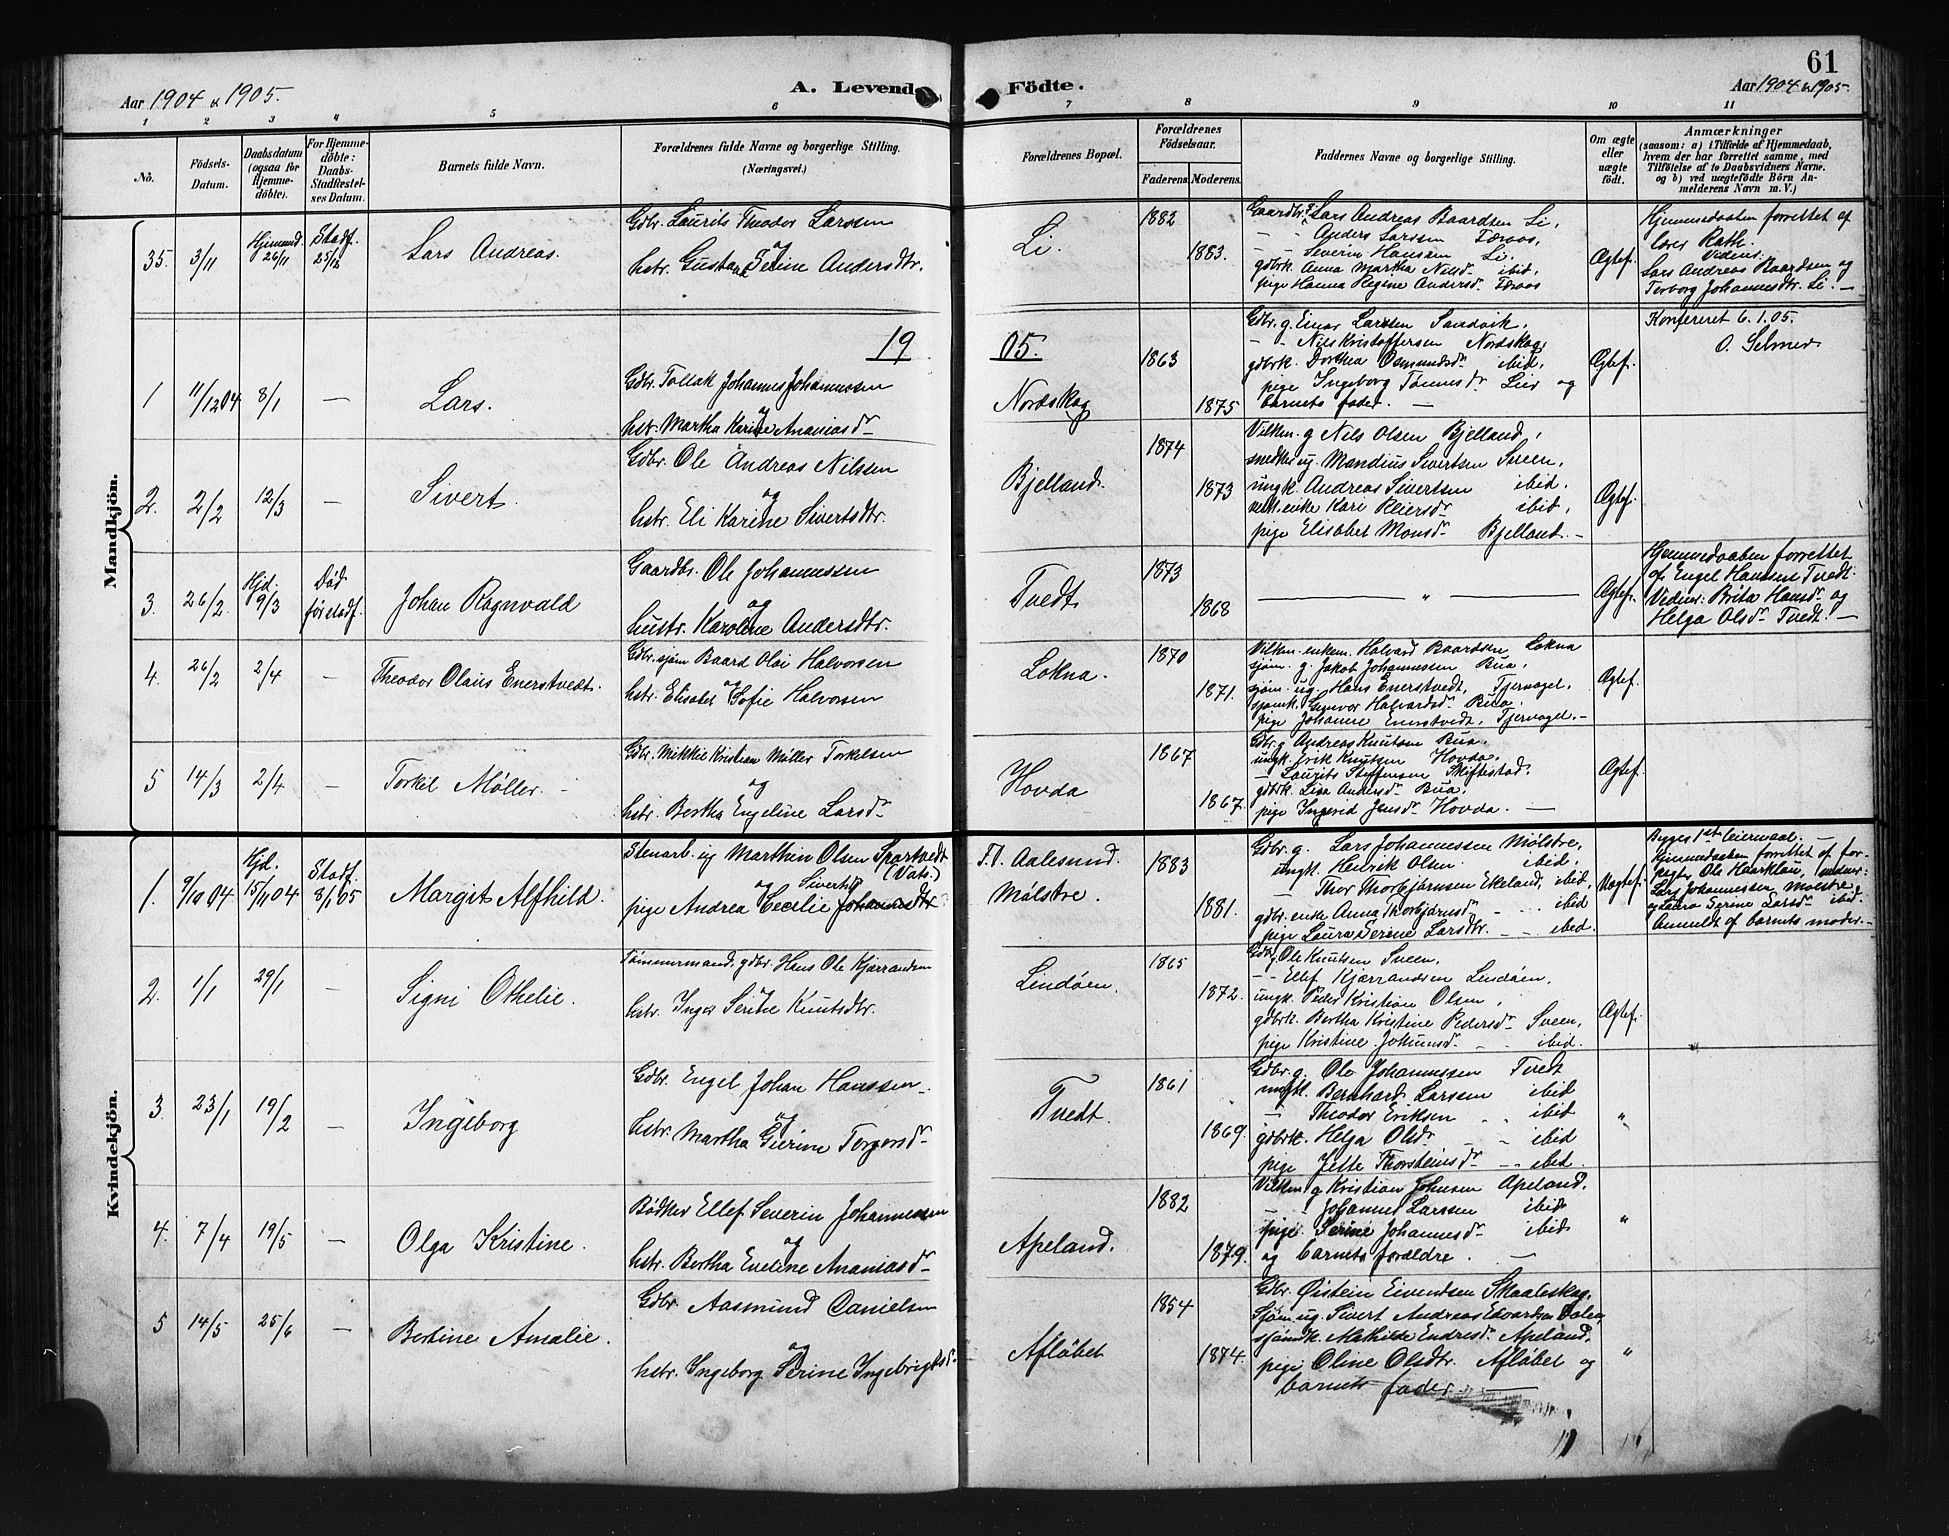 61
Aar 1904 & 1905.
A. Levende Födte.
Aar 1904 & 1905.
1 2 3 4 5 6 7 8 9 10 11
No.
Födsels-Datum.
Daabsdatum (ogsaa for Hjemme-döbte).
For Hjemme-döbte: Daabs-Stadfæstel-ses Datum.
Barnets fulde Navn.
Forældrenes fulde Navne og borgerlige Stilling.
(Næringsvei.)
Forældrenes Bopæl.
Forældrenes Födselsaar.
Faderens. Moderens.
Faddernes Navne og borgerlige Stilling.
Om ægte eller uægte födt.
Anmærkninger
(saasom: a) i Tilfælde af Hjemmedaab,
hvem der har forrettet samme, med
Tilföielse af to Daabsvidners Navne,
og b) ved uægtefödte Börn An-
melderens Navn m. V.)
Mandkjön.
35. 3/11 Hjemmd. 26/11 Stadf. 25/12 Lars Andreas.
Gdbr. Laurits Theodor Larssen
og
hstr. Gustava Serine Andersdtr.
Li. 1882 1883.
Gaardbr. g. Lars Andreas Baardsen Li,
- - Anders Larssen Færaas,
- - Severin Hansen Li,
gdbrk. Anna Martha Nilsd. ibid,
pige Hanna Regine Andersd. Færaas
Ægtef.
Hjemmedaaben forrettet af
lærer Rath.
Vidner:
Lars Andreas Baardsen og
Torborg Johannesdtr. Li. -
1905.
1 11/12 04 8/1 - Lars.
Gdbr. Tollak Johannes Johannessen
og
hstr. Martha Karine Ananiasdr
Nordskog 1863 1875
Gdbr. g. Einar Larsen Sandvik,
- - Nils Kristoffersen Nordskog,
gdbrk. Dorthea Osmundsdr ibid,
pige Ingeborg Tönnesdr Lier og
barnets fader. -
Ægtef.
Konfereret 6.1.05.
O. Selmer
2. 2/2 12/3 - Sivert.
Gdbr. Ole Andreas Nilsen
og
hstr. Eli Karine Sivertsdtr.
Bjelland. 1874 1873
Vilkm. g Nils Olsen Bjelland,
snedker ug. Mandius Sivertsen Sveen,
ungk. Andreas Sivertsen ibid,
vilk.enke Kari Reiersdr ibid,
pige Elisabet Monsdr Bjelland. -
Ægtef.
3. 26/2. Hjd. 9/3 Död för stadf. Johan Ragnvald
Gaardbr. Ole Johannessen
og
hustr. Karoline Andersdtr.
Tvedt 1873 1868
- " -
Ægtef.
Hjemmedaaben forrettet
af Engel Hanssen Tvedt.
Vidner: Brita Hansdr og
Helga Olsdr Tvedt. -
4. 26/2 2/4 - Theodor Olaus Enerstvedt.
Gdbr. sjöm Baard Olai Halvorsen
og
hstr. Elisabet Sofie Halvorsen
Lokna. 1870 1871.
Vilkm. enkem. Halvard Baardsen Lokna
sjöm. g. Jakob Johannessen Bua,
sjöm. ug. Hans Enerstvedt, Tjernagel,
sjömk. Gunvor Halvardsdr Bua,
pige Johanne Enerstvedt, Tjernagel. -
Ægtef.
5 14/3 2/4 - Torkel Møller. -
Gdbr. Mikkel Kristian Møller Torkelsen
og
hstr. Bertha Engeline Larsdr
Hovda 1867 1867.
Gdbr. g Andreas Knutsen Bua.
ungk. Erik Knutsen Hovda.
- Laurits Steffensen Skiftestad.
gdbrk. Lisa Andersdr Bua.
pige Ingerid Jensdr Hovda. -
Ægtef.
Kvindekjön.
1. 9/10 04 Hjd. 15/11 04 Stadf. 8/1 05 Margit Alfhild.
Stenarb. ug Marthin Olsen Sportvedt
(Vats.)
og Sivertsdr
pige Andrea Cecilie Johannesdtr
F.t. Aalesund.
Mölstre. 1883 1881.
Gdbr. g. Lars Johannessen Mölstre,
ungk. Henrik Olsen ibid,
- Thor Thorbjørnsen Ekeland, ibid,
gdbr. enke Anna Thorbjørnsdr - ibid
pige Laura Serine Larsdtr. - ibid.
Uægtef.
Begges 1st leiermaal. -
Hjemmedaaben forrettet af for-
pagter Ole Haarklau, vidner:
Lars Johannessen Mölstre
og Laura Serine Larsdr ibid.
Anmeldt af barnets moder. -
2. 1/1 29/1 - Signi Othelie.
Tömmermand, gdbr. Hans Ole Kjørrandsen
hstr. Inger Serine Knutsdtr.
Lindöen. 1865 1872.
Gdbr. g Ole Knutsen Sveen,
- - Ellef Kjærrandsen Lindöen,
ungk. Peder Kristian Olsen,
gdbrk. Bertha Kristine Pedersdr Sveen,
pige Kristine Johannsdr - - ibid.
Ægtef.
3. 23/1 19/2 - Ingeborg
Gdbr. Engel Johan Hanssen
og
hstr. Martha Gurine Torgersdr
Tvedt. 1861 1869.
Gdbr. g. Ole Johannessen Tvedt
ungk. Bernhard Larssen ibid
- Theodor Eriksen ibid
gdbrk. Helga Olsdr - ibid
pige Jette Thorsteinsdr - ibid.
"
4. 7/4 19/5 - Olga Kristine.
Bödker Ellef Severin Johannessen
og
hstr. Bertha Eveline Ananiasdr
Apeland. 1882 1879.
Vilkm. g Kristian Johnsen Apeland.
- Johannes Larssen ibid
pige Serine Johannesdr ibid
og barnets forældre. -
"
5 14/5 25/6 - Bertine Amalie.
Gdbr. Aasmund Danielsen
og
hstr. Ingeborg Serine Ingebrigtsd.
Aflöbet 1854 1874.
Gdbr. Øistein Eivendsen Skaaleskog.
Sjöm ug. Sivert Andreas Edvardsen Dalen,
sjömk. Mathilde Endresdr Apeland,
pige Oline Olsdtr. Aflöbet og
barnets fader.
"